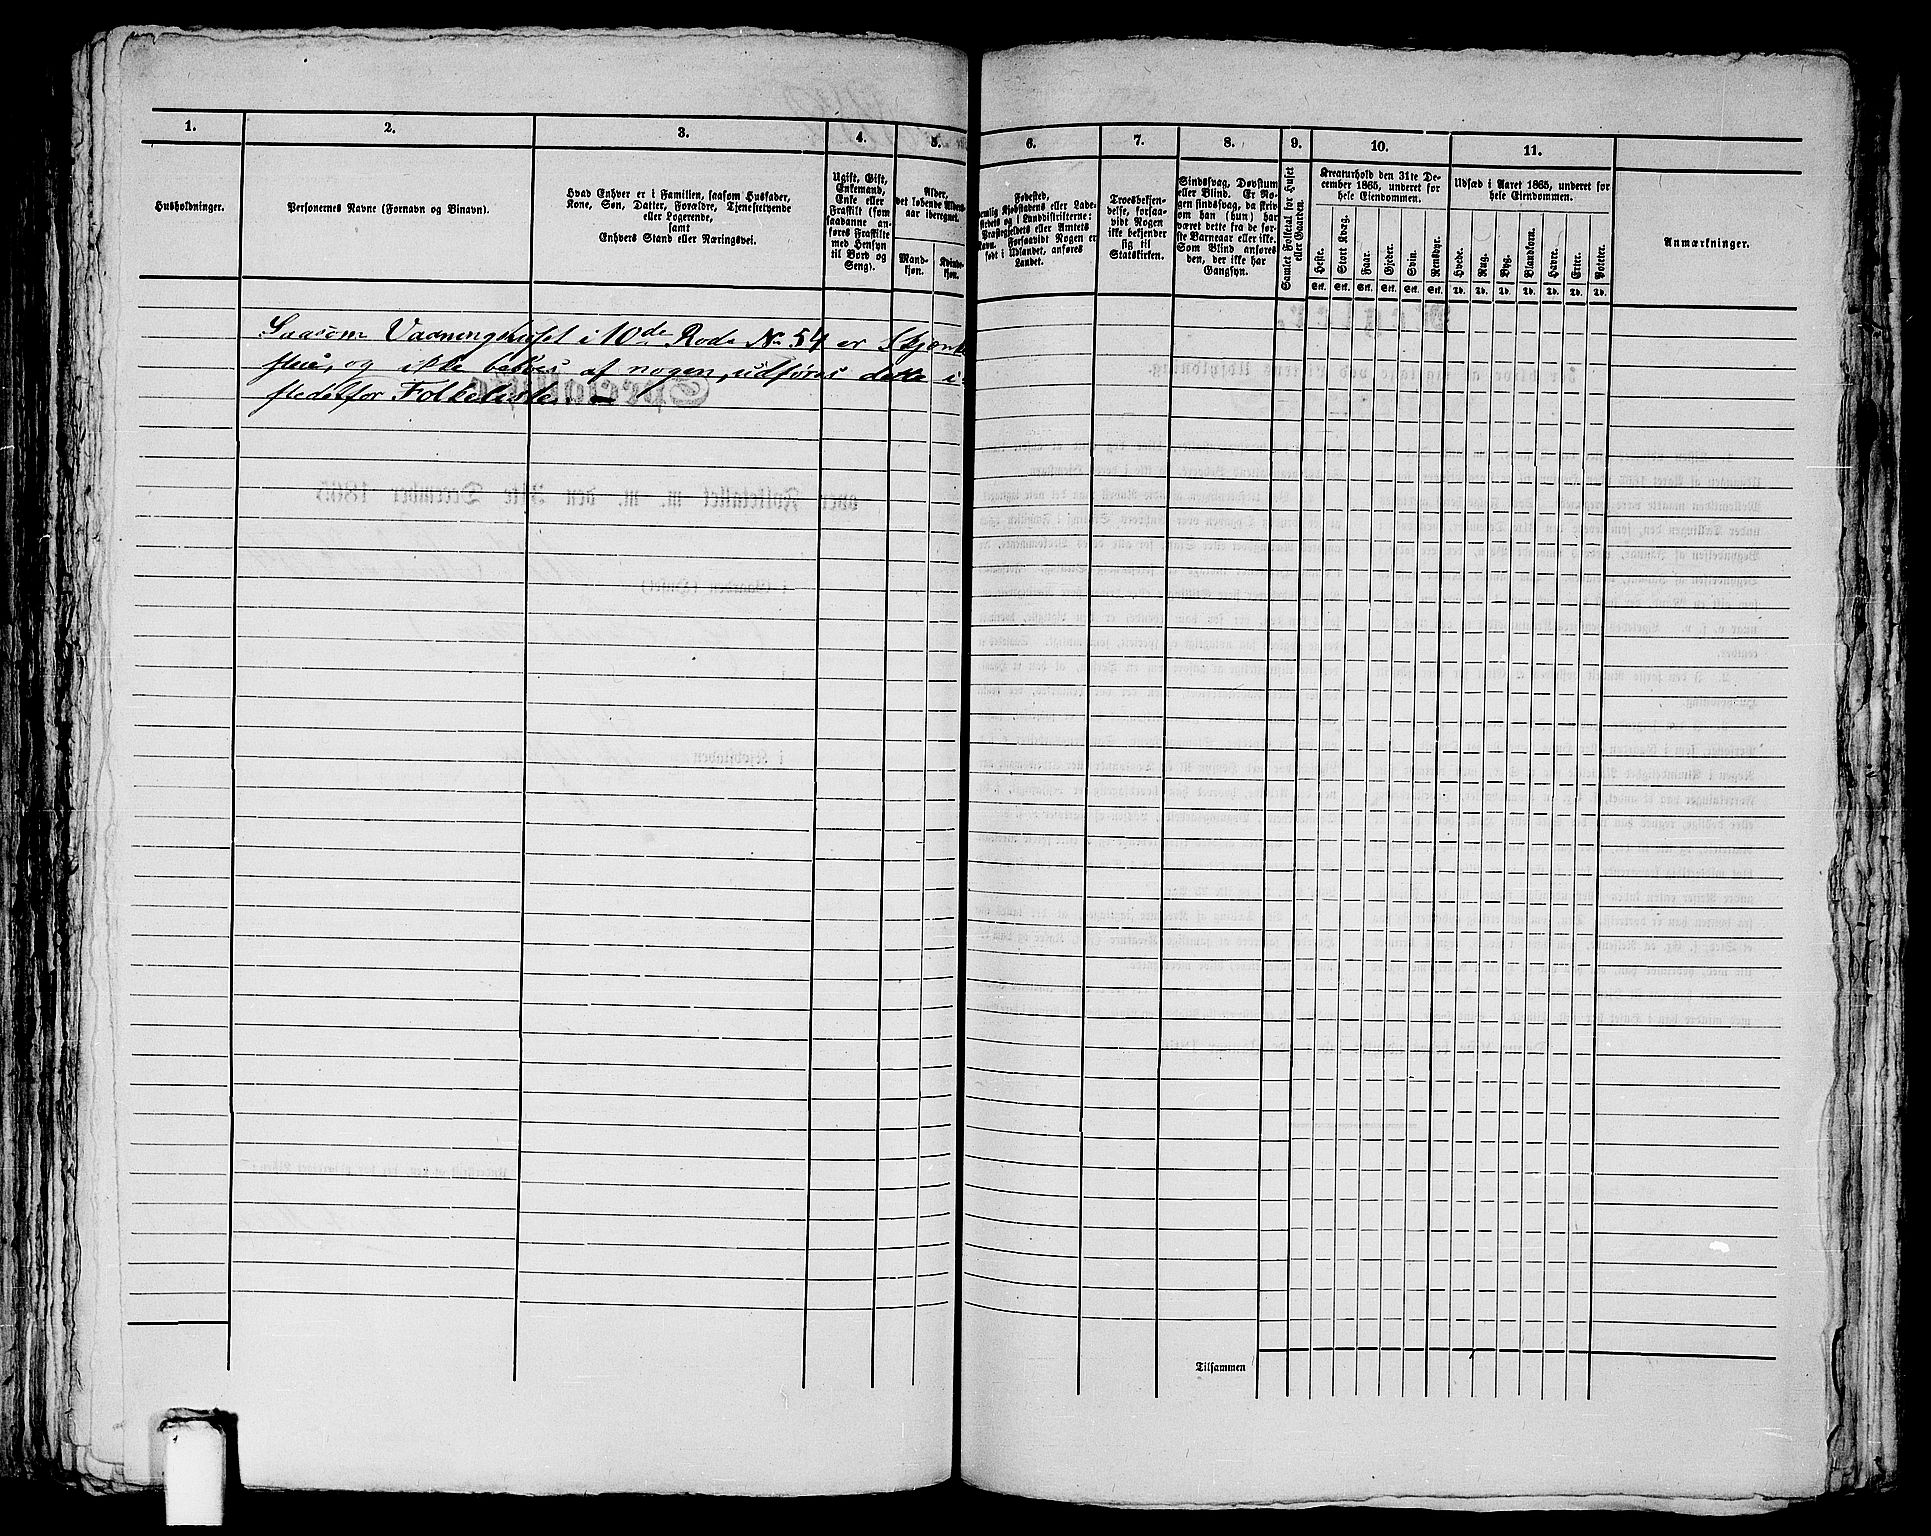 1.
2.
3.
4.
5.
6.
7.
8.
9.
10.
11.
Husholdninger.
Personernes Navne (Fornavn og Binavn).
Hvad Enhver er i Familien, saasom Husfader,
Kone, Søn, Datter, Forældre, Tjenestetyende
eller Logerende,
samt
Enhvers Stand eller Næringsvei.
Ugift, Gift,
Enkemand,
Enke eller
Fraskilt (som
saadanne an-
føres Fraskilte
med Hensyn
til Bord og
Seng).
Alder,
det løbende Alders-
aar iberegnet.
Mand-
kjøn.
Kvinde-
kjøn.
Fødested,
nemlig Kjøbstadens eller Lade-
stedets og i Landdistrikterne:
Præstegjældets eller Amtets
Navn. Forsaavidt Nogen er
født i Udlandet, anføres
Landet.
Troesbekjen-
delse, forsaa-
vidt Nogen
ikke bekjender
sig til
Statskirken.
Sindssvag, Døvstum
eller Blind. Er No-
gen sindssvag, da skriv
om han (hun) har
været dette fra de før-
ste Barneaar eller ikke.
Som Blind anføres
den, der ikke har
Gangsyn.
Samlet Folketal for Huset
eller Gaarden.
Kreaturhold den 31te De-
cember 1865, underet for
hele Eiendommen.
Heste.
Stort Kvæg.
Faar.
Gjeder.
Svin.
Rensdyr.
Stk. Stk. Stk. Stk. Stk. Stk.
Udsæd i Aaret 1865, underet for
hele Eiendommen.
Hvede.
Rug.
Byg.
Blandkorn.
Havre.
Erter.
Poteter.
Td. Td. Td. Td. Td. Td. Td.
Anmærkninger.
Saasom Vaaningshuset i 10de Rode No 54 er Skjænk
stue, og ikke beboes af nogen, udføres dette i-
stedetfor Folkeliste. —
Tilsammen